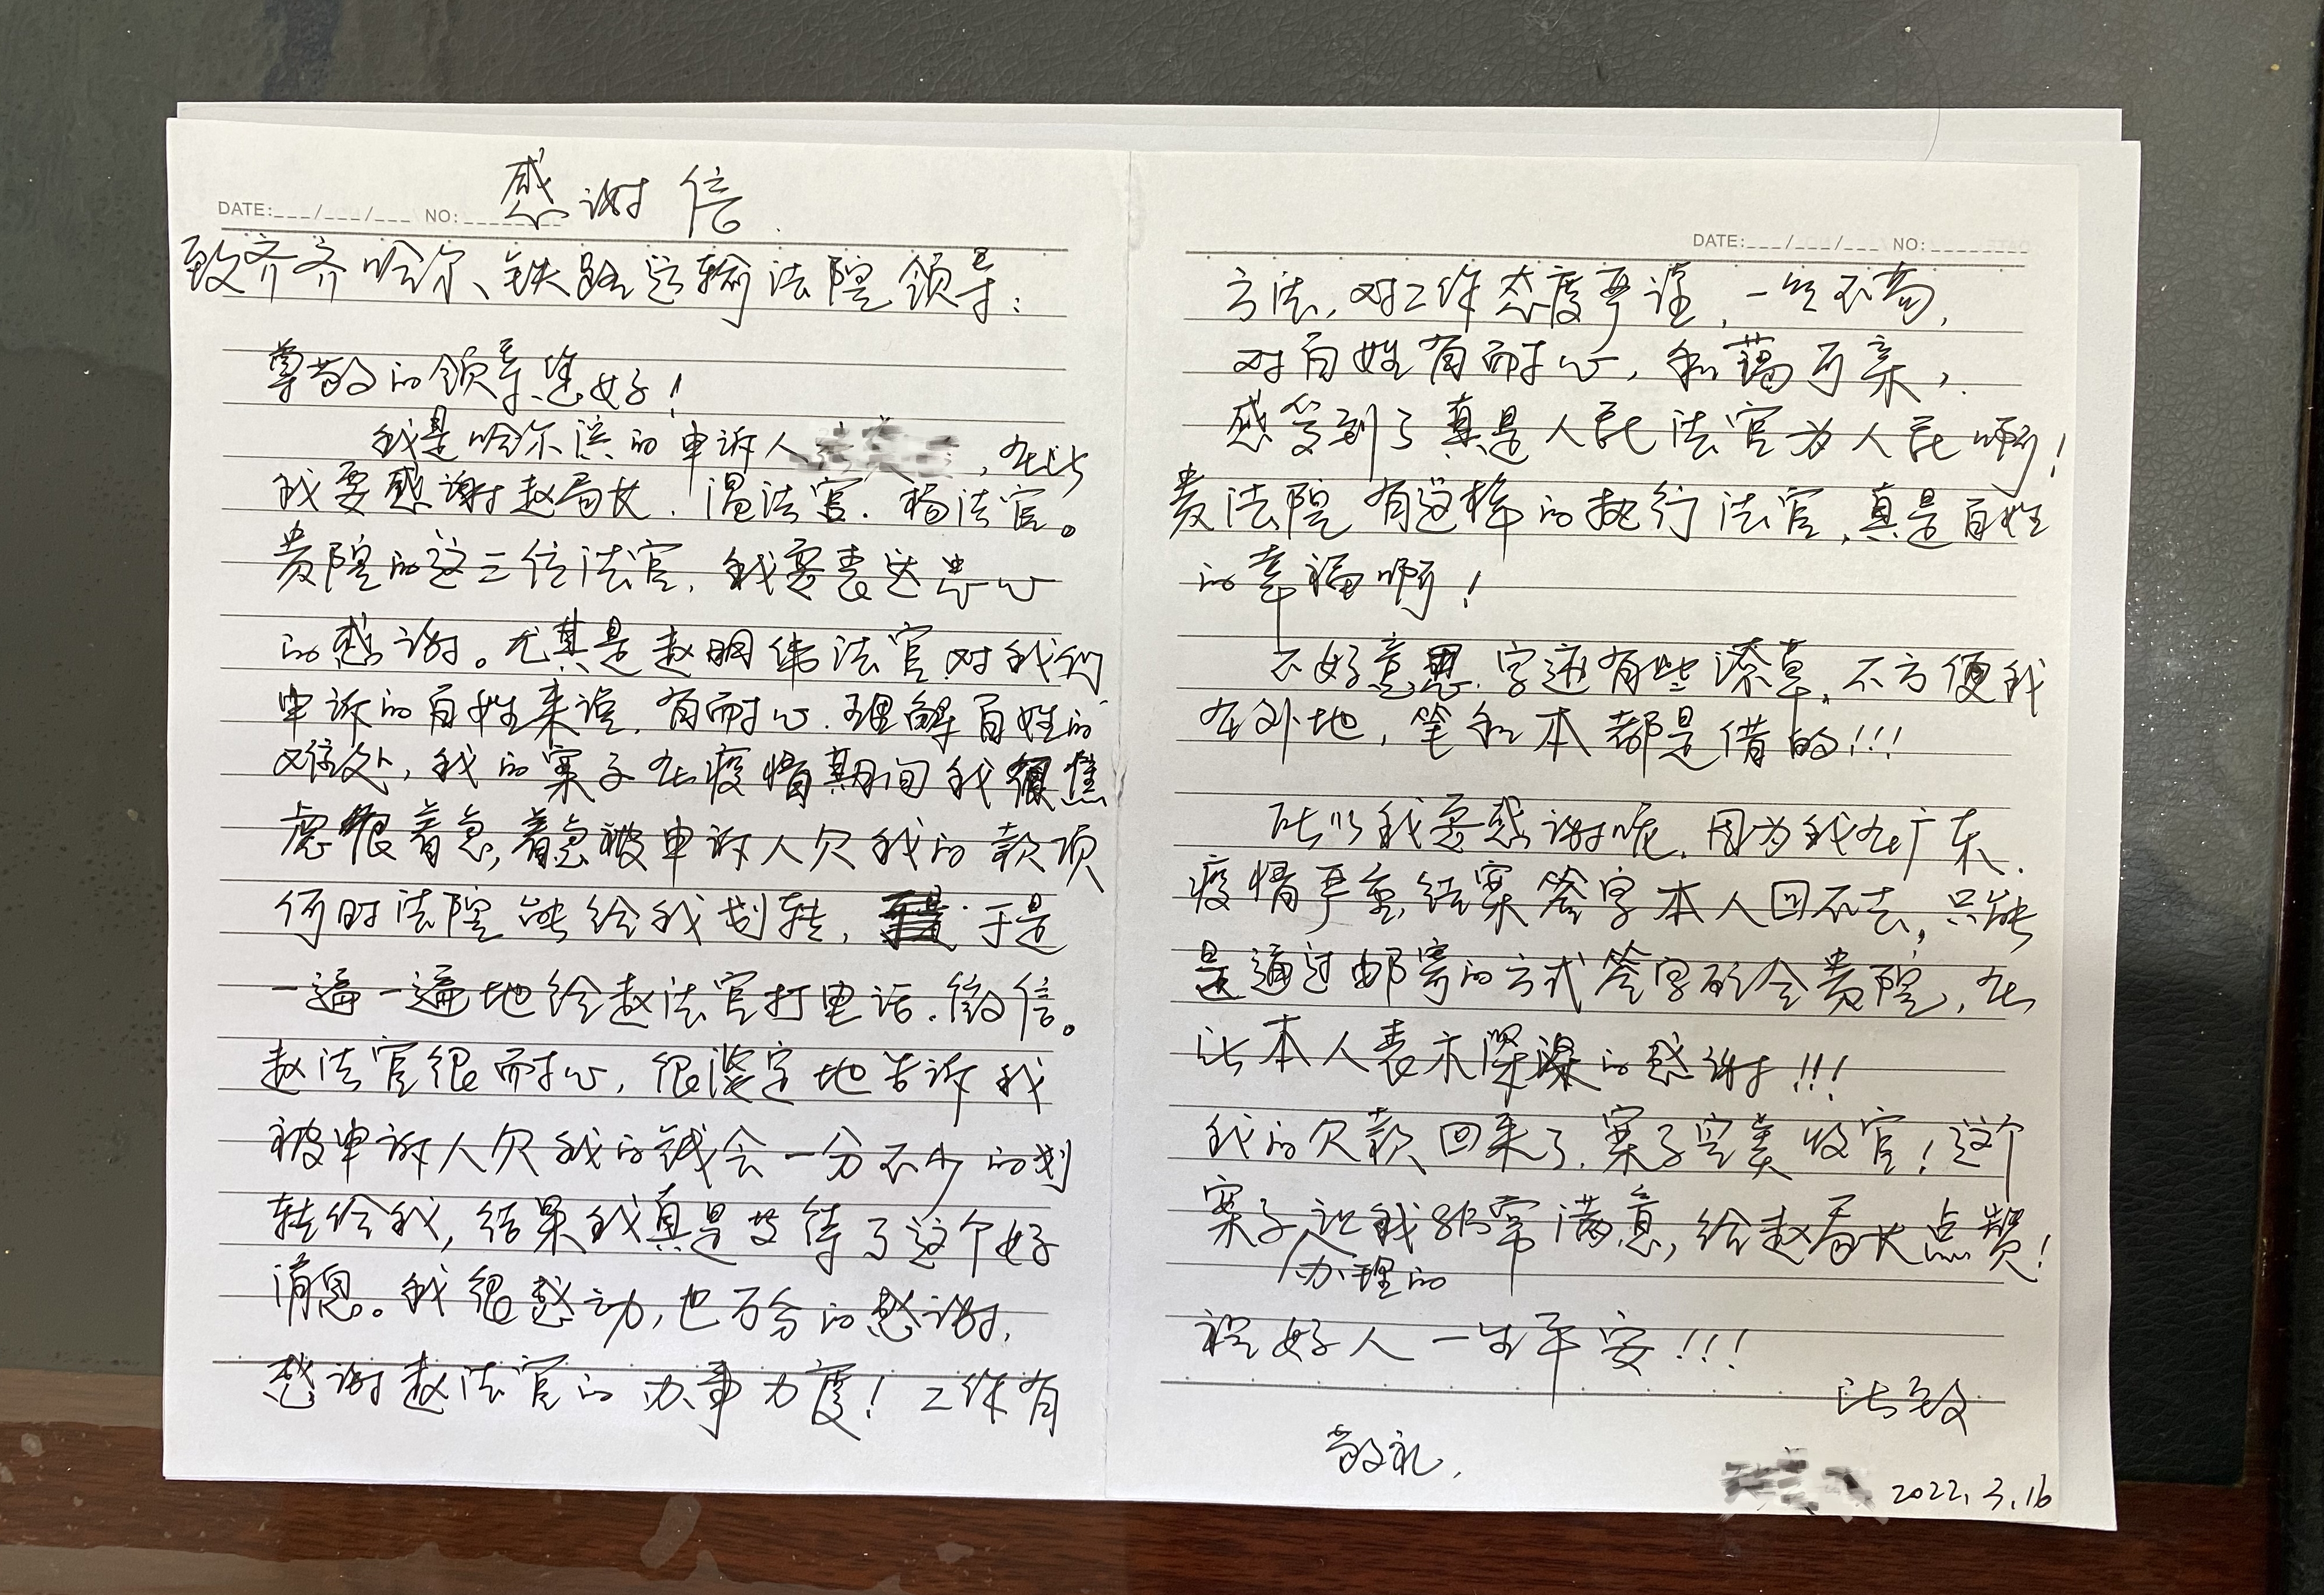 感谢信.
DATE:___/___/___ NO:______
致齐齐哈尔、铁路运输法院领导：
尊敬的领导您好！
我是哈尔滨的申诉人，在此
我要感谢赵局长.温法官.杨法官。
贵院的这三位法官,我要表达衷心
的感谢。尤其是赵明伟法官对我们
申诉的百姓来说,有耐心.理解百姓的
难处,我的案子在疫情期间我很焦
虑很着急,着急被申诉人欠我的款项
何时法院能给我划转,于是
一遍一遍地给赵法官打电话.微信。
赵法官很而耐心,很淡定地告诉我
被申诉人欠我的钱会一分不少的划
转给我,结果我真是等待了这个好
消息。我很感动,也万分的感谢,
感谢赵法官的办事力度！工作有
DATE:___/___/___ NO:______
方法,对工作态度严谨,一丝不苟,
对百姓有耐心,和蔼可亲,
感觉到了真是人民法官为人民啊！
贵法院有这样的执行法官,真是百姓
的幸福啊！
不好意思.字迹有些潦草,不方便我
在外地,笔和本都是借的!!!
所以我要感谢呢.因为我在广东.
疫情严重,结案签字本人回不去,只能
是通过邮寄的方式签字邮给贵院,在
此本人表示深深的感谢!!!
我的欠款回来了.案子完美收官！这个
案子让我非常满意,给赵局长点赞！
办理的
祝好人一生平安!!!
此致
敬礼.
2022.3.16